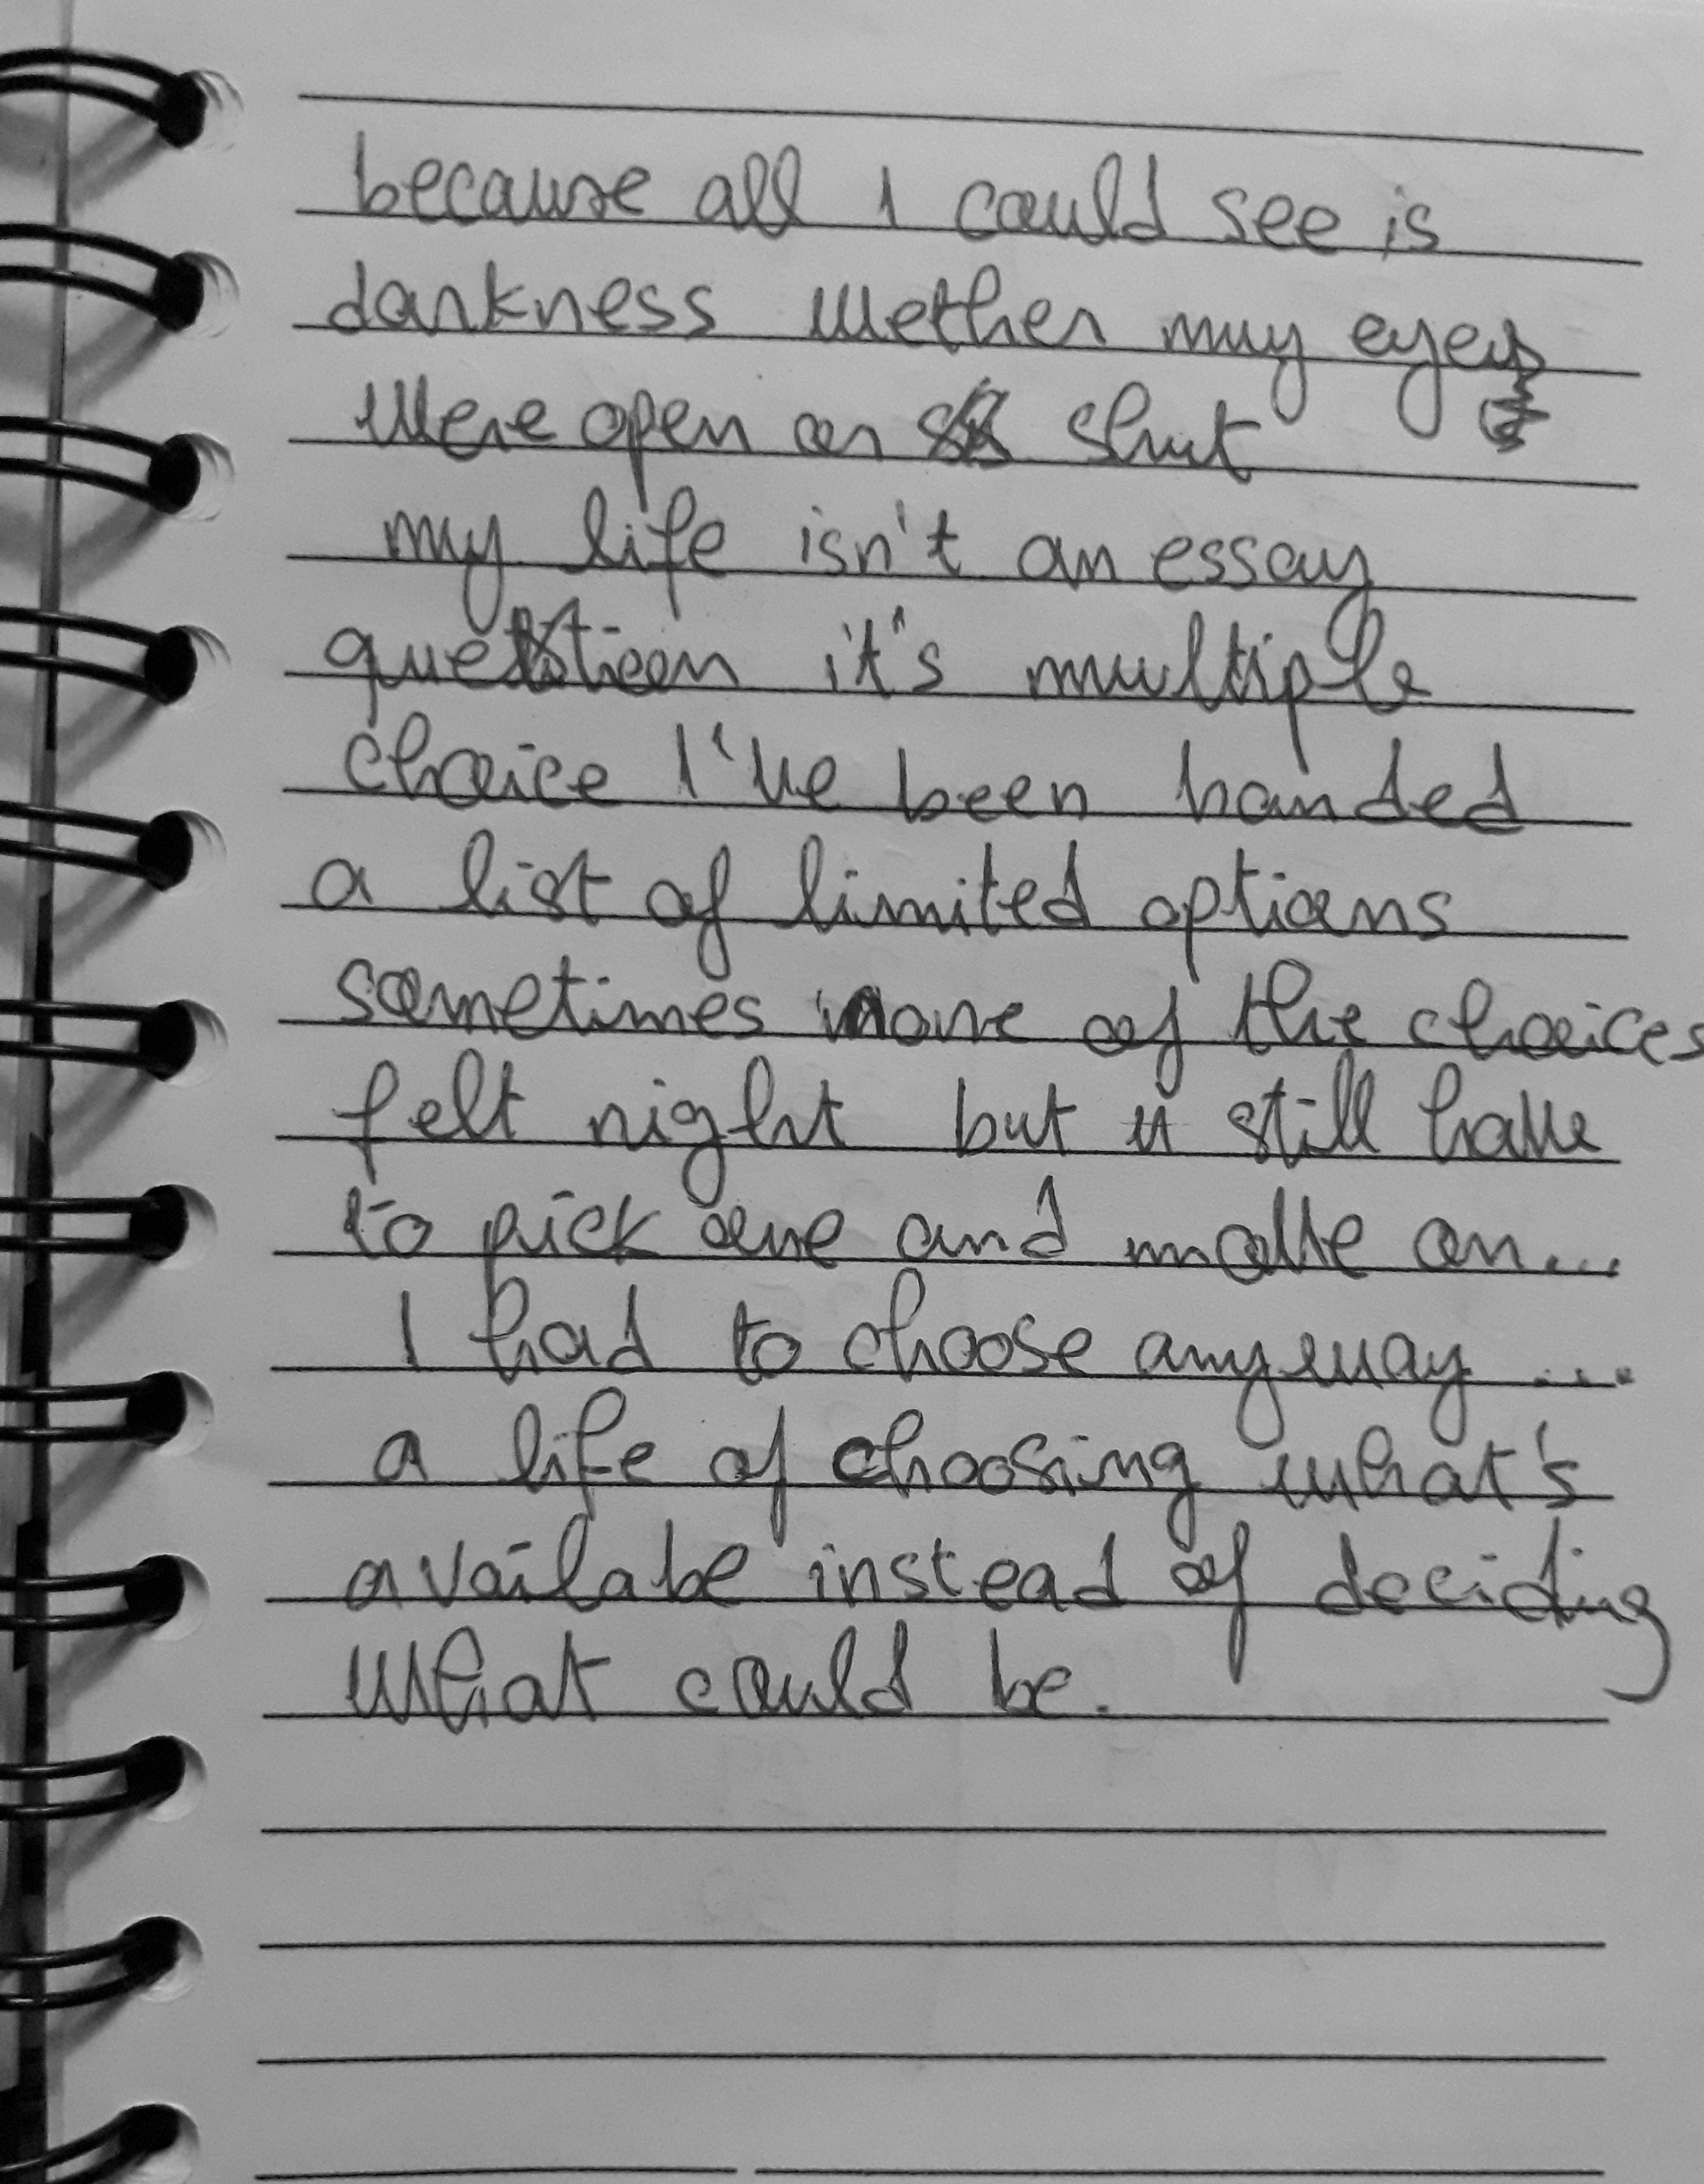 because all I could see is
darkness wether my eyes
were open or shut
my life isn't an essay
question it's multiple
choice I've been handed
a list of limited options
sometimes none of the choices
felt right but u still have
to pick one and move on...
I had to choose anyway ...
a life of choosing what's
availabe instead of deciding
what could be.